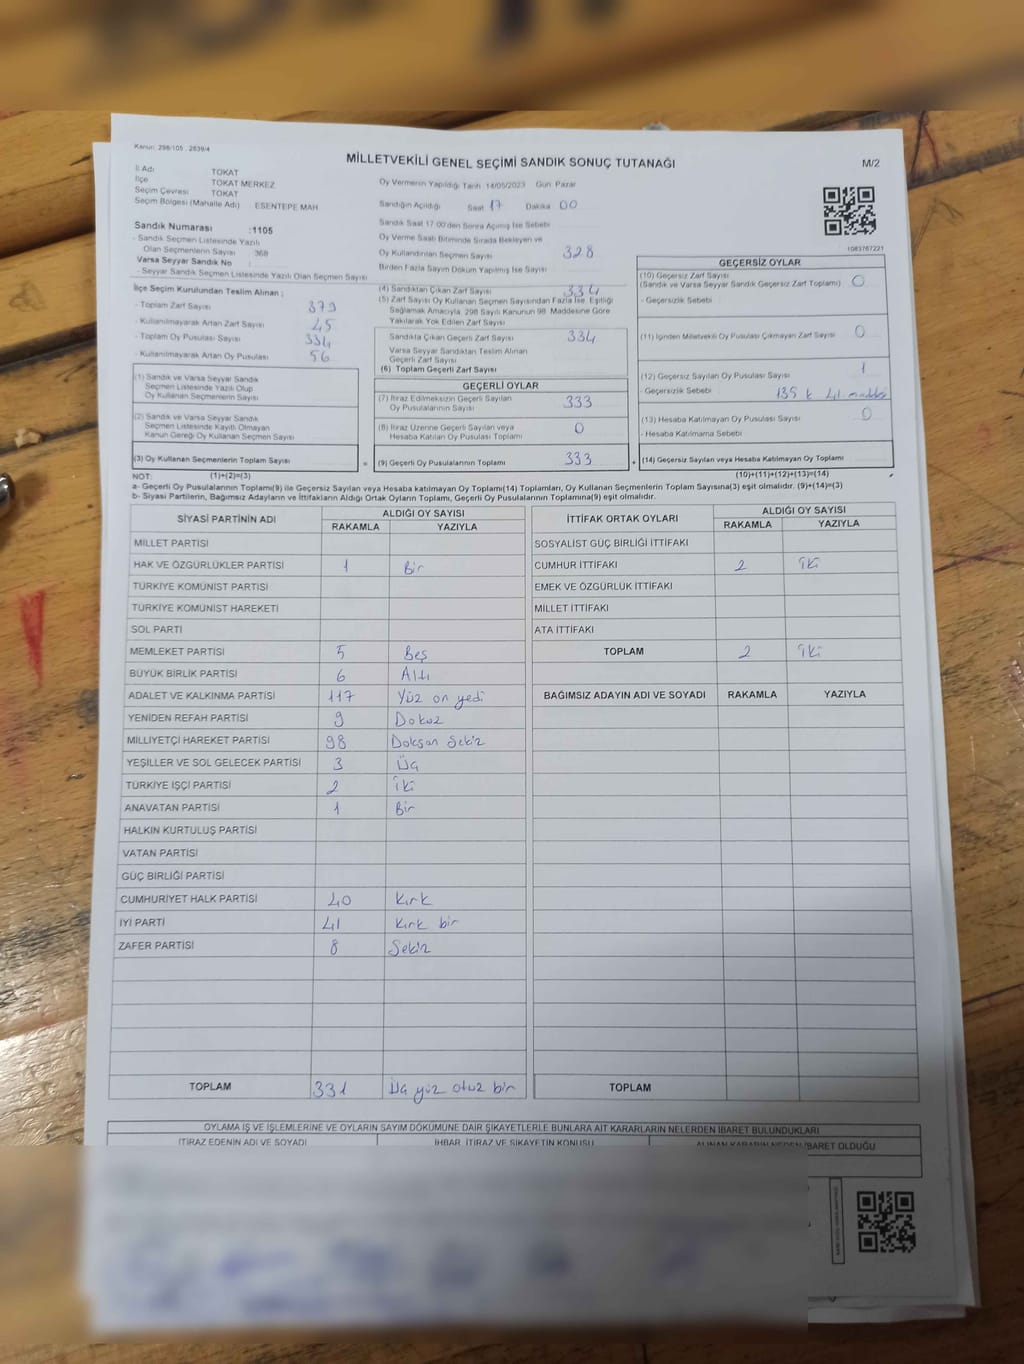 Kanun: 298/105 , 2839/4
MİLLETVEKİLİ GENEL SEÇİMİ SANDIK SONUÇ TUTANAĞI
M/2
İl Adı TOKAT
İlçe TOKAT MERKEZ
Seçim Çevresi TOKAT
Seçim Bölgesi (Mahalle Adı) ESENTEPE MAH.
Sandık Numarası :1105
- Sandık Seçmen Listesinde Yazılı
Olan Seçmenlerin Sayısı 368
Varsa Seyyar Sandık No :
- Seyyar Sandık Seçmen Listesinde Yazılı Olan Seçmen Sayısı
Oy Vermenin Yapıldığı Tarih 14/05/2023 Gün Pazar
Sandığın Açıldığı Saat 17 Dakika 00
Sandık Saat 17.00'den Sonra Açılmış İse Sebebi
Oy Verme Saati Bitiminde Sırada Bekleyen ve
Oy Kullandırılan Seçmen Sayısı 328
Birden Fazla Sayım Döküm Yapılmış İse Sayısı
1083767221
İlçe Seçim Kurulundan Teslim Alınan ;
- Toplam Zarf Sayısı 379
- Kullanılmayarak Artan Zarf Sayısı 45
- Toplam Oy Pusulası Sayısı 334
- Kullanılmayarak Artan Oy Pusulası 56
(1) Sandık ve Varsa Seyyar Sandık
Seçmen Listesinde Yazılı Olup
Oy Kullanan Seçmenlerin Sayısı
(2) Sandık ve Varsa Seyyar Sandık
Seçmen Listesinde Kayıtlı Olmayan
Kanun Gereği Oy Kullanan Seçmen Sayısı
(3) Oy Kullanan Seçmenlerin Toplam Sayısı
=
(4) Sandıktan Çıkan Zarf Sayısı 334
(5) Zarf Sayısı Oy Kullanan Seçmen Sayısından Fazla İse, Eşitliği
Sağlamak Amacıyla, 298 Sayılı Kanunun 98. Maddesine Göre
Yakılarak Yok Edilen Zarf Sayısı
Sandıkta Çıkan Geçerli Zarf Sayısı 334
Varsa Seyyar Sandıktan Teslim Alınan
Geçerli Zarf Sayısı
(6) Toplam Geçerli Zarf Sayısı
GEÇERLİ OYLAR
(7) İtiraz Edilmeksizin Geçerli Sayılan
Oy Pusulalarının Sayısı 333
(8) İtiraz Üzerine Geçerli Sayılan veya
Hesaba Katılan Oy Pusulası Toplamı 0
(9) Geçerli Oy Pusulalarının Toplamı 333
+
GEÇERSİZ OYLAR
(10) Geçersiz Zarf Sayısı
(Sandık ve Varsa Seyyar Sandık Geçersiz Zarf Toplamı) 0
- Geçersizlik Sebebi
(11) İçinden Milletvekili Oy Pusulası Çıkmayan Zarf Sayısı 0
(12) Geçersiz Sayılan Oy Pusulası Sayısı 1
- Geçersizlik Sebebi 135 k 41 madde
(13) Hesaba Katılmayan Oy Pusulası Sayısı 0
- Hesaba Katılmama Sebebi
(14) Geçersiz Sayılan veya Hesaba Katılmayan Oy Toplamı
NOT: (1)+(2)=(3) (10)+(11)+(12)+(13)=(14)
a- Geçerli Oy Pusulalarının Toplamı(9) ile Geçersiz Sayılan veya Hesaba katılmayan Oy Toplamı(14) Toplamları, Oy Kullanan Seçmenlerin Toplam Sayısına(3) eşit olmalıdır. (9)+(14)=(3)
b- Siyasi Partilerin, Bağımsız Adayların ve İttifakların Aldığı Ortak Oyların Toplamı, Geçerli Oy Pusulalarının Toplamına(9) eşit olmalıdır.
SİYASİ PARTİNİN ADI ALDIĞI OY SAYISI
RAKAMLA YAZIYLA
MİLLET PARTİSİ
HAK VE ÖZGÜRLÜKLER PARTİSİ 1 Bir
TÜRKİYE KOMÜNİST PARTİSİ
TÜRKİYE KOMÜNİST HAREKETİ
SOL PARTİ
MEMLEKET PARTİSİ 5 Beş
BÜYÜK BİRLİK PARTİSİ 6 Altı
ADALET VE KALKINMA PARTİSİ 117 Yüz on yedi
YENİDEN REFAH PARTİSİ 9 Dokuz
MİLLİYETÇİ HAREKET PARTİSİ 98 Doksan Sekiz
YEŞİLLER VE SOL GELECEK PARTİSİ 3 Üç
TÜRKİYE İŞÇİ PARTİSİ 2 İki
ANAVATAN PARTİSİ 1 Bir
HALKIN KURTULUŞ PARTİSİ
VATAN PARTİSİ
GÜÇ BİRLİĞİ PARTİSİ
CUMHURİYET HALK PARTİSİ 40 Kırk
İYİ PARTİ 41 Kırk bir
ZAFER PARTİSİ 8 Sekiz
TOPLAM 331 Üç yüz otuz bir
İTTİFAK ORTAK OYLARI ALDIĞI OY SAYISI
RAKAMLA YAZIYLA
SOSYALİST GÜÇ BİRLİĞİ İTTİFAKI
CUMHUR İTTİFAKI 2 İki
EMEK VE ÖZGÜRLÜK İTTİFAKI
MİLLET İTTİFAKI
ATA İTTİFAKI
TOPLAM 2 İki
BAĞIMSIZ ADAYIN ADI VE SOYADI RAKAMLA YAZIYLA
TOPLAM
OYLAMA İŞ VE İŞLEMLERİNE VE OYLARIN SAYIM DÖKÜMÜNE DAİR ŞİKAYETLERLE BUNLARA AİT KARARLARIN NELERDEN İBARET BULUNDUKLARI
İTİRAZ EDENİN ADI VE SOYADI İHBAR, İTİRAZ VE ŞİKAYETİN KONUSU ALINAN KARARIN NEDEN İBARET OLDUĞU